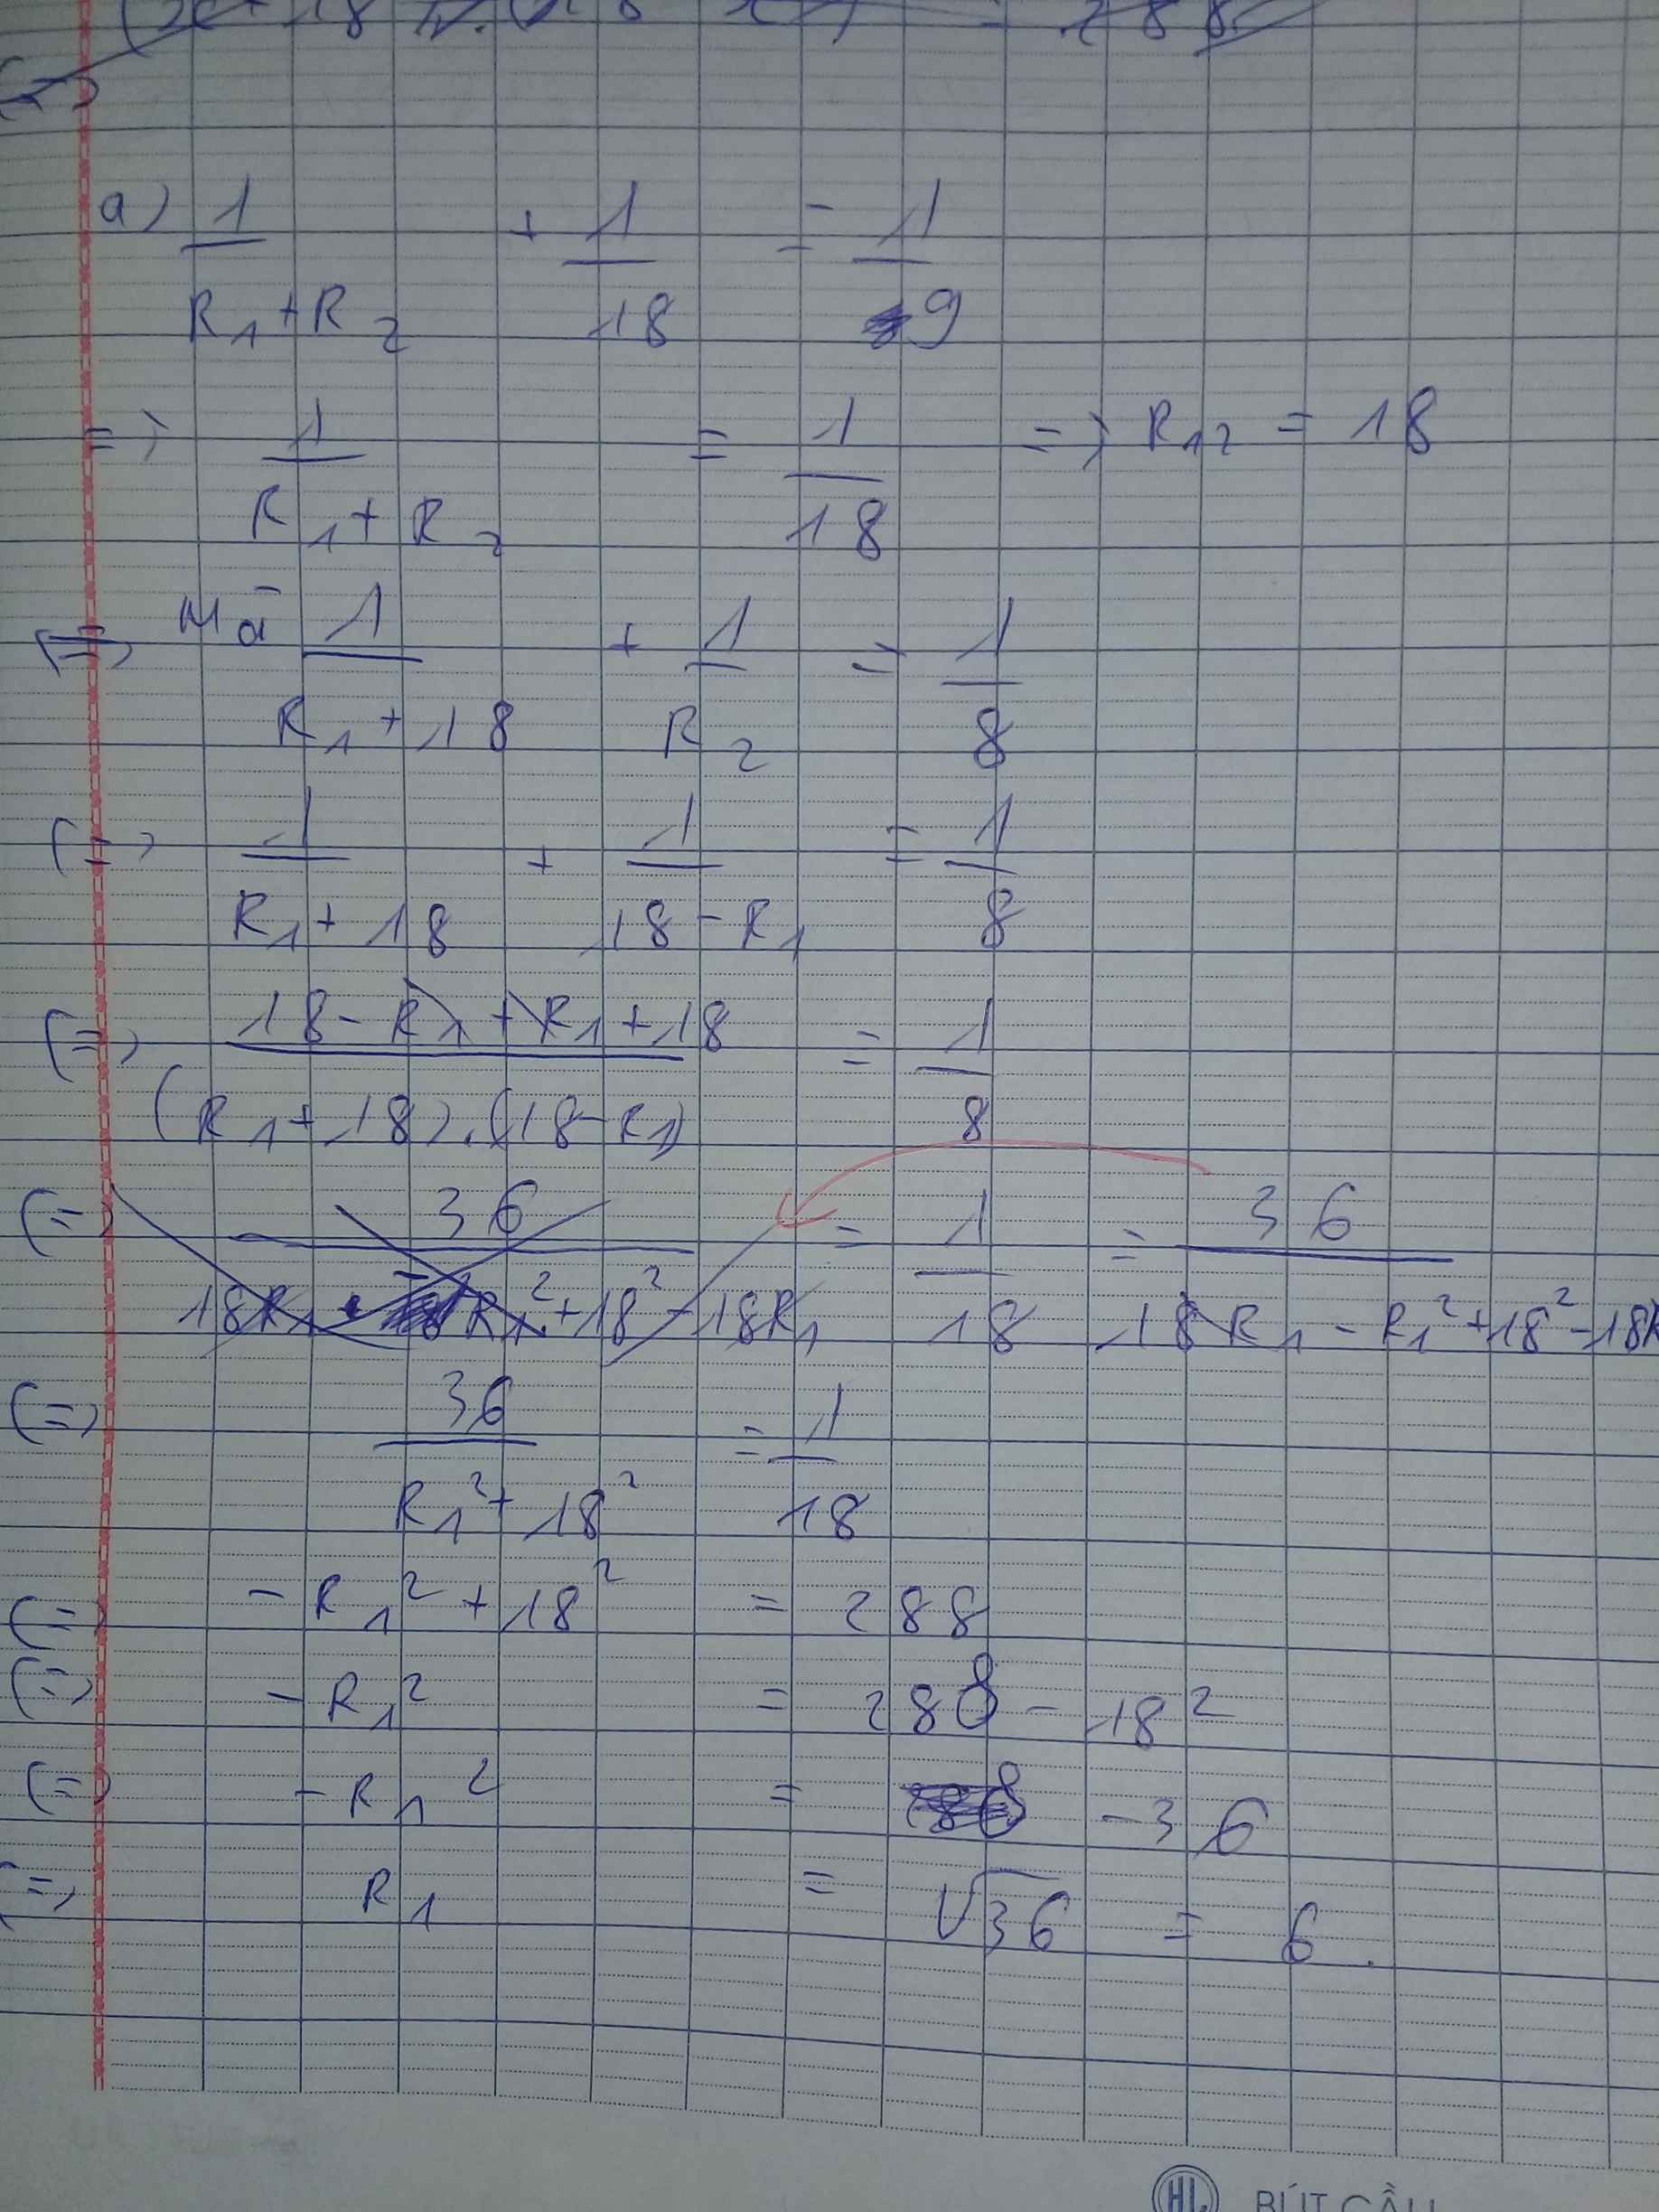 = 288
a) 1/(R₁+R₂) + 1/18 = 1/9
=> 1/(R₁+R₂) = 1/18 => R₁₂ = 18
(=) Mà 1/(R₁+18) + 1/R₂ = 1/8
(=) 1/(R₁+18) + 1/(18-R₁) = 1/8
(=) (18-R₁+R₁+18)/((R₁+18).(18-R₁)) = 1/8
(=) 36/(18R₁ - R₁²+18²-18R₁) = 1/18 = 36/(18R₁-R₁²+18²-18R
(=) 36/(R₁²+18²) = 1/18
(=) -R₁²+18² = 288
(=) -R₁² = 288-18²
(=) -R₁² = -36
(=) R₁ = √36 = 6.
HL BÚT CẦU